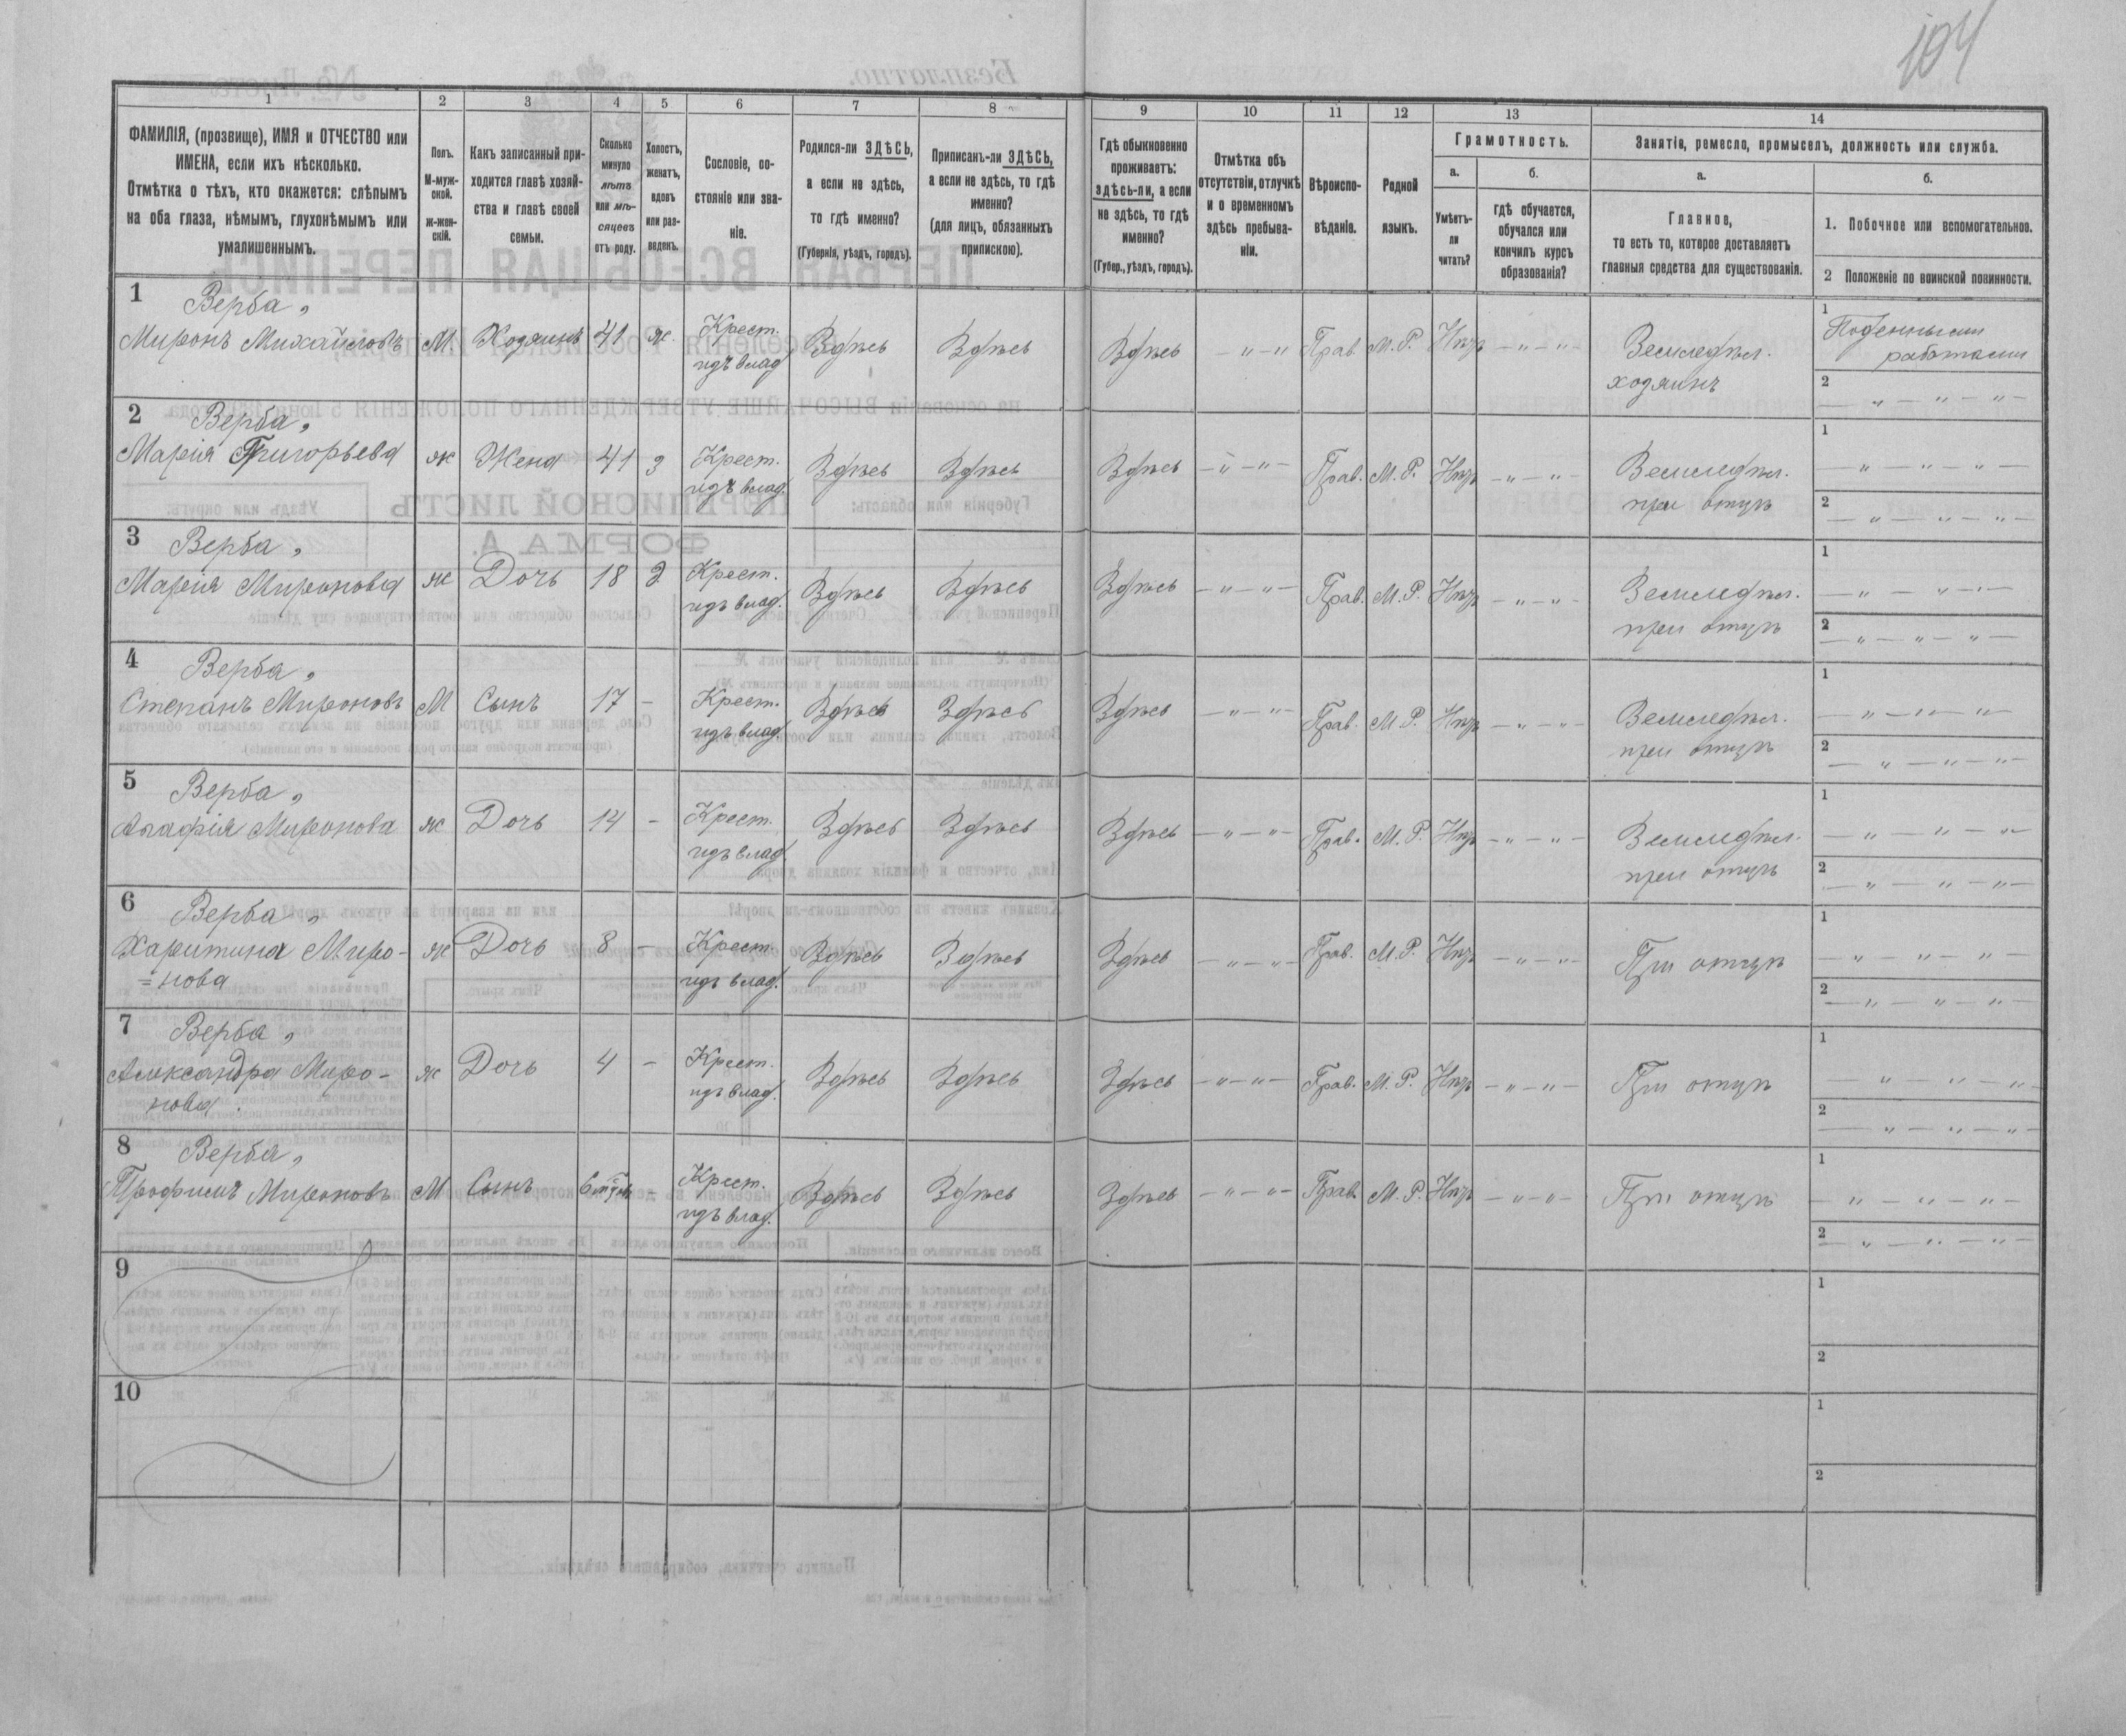 104
1
2
3
4
5
6
7
8
9
10
11
12
13
14
ФАМИЛІЯ, (прозвище), ИМЯ и ОТЧЕСТВО или
ИМЕНА, если ихъ нѣсколько.
Отмѣтка о тѣхъ, кто окажется: слѣпымъ
на оба глаза, нѣмымъ, глухонѣмымъ или
умалишеннымъ.
Полъ.
М-муж-
ской.
ж-жен-
скій.
Какъ записанный при-
ходится главѣ хозяй-
ства и главѣ своей
семьи.
Сколько
минуло
лѣтъ
или мѣ-
сяцевъ
отъ роду.
Холостъ,
женатъ,
вдовъ
или раз-
веденъ.
Сословіе, со-
стояніе или зва-
ніе.
Родился-ли ЗДѢСЬ,
а если не здѣсь,
то гдѣ именно?
(Губернія, уѣздъ, городъ).
Приписанъ-ли ЗДѢСЬ,
а если не здѣсь, то гдѣ
именно?
(для лицъ, обязанныхъ
припискою).
Гдѣ обыкновенно
проживаетъ:
здѣсь-ли, а если
не здѣсь, то гдѣ
именно?
(Губер., уѣздъ, городъ).
Отмѣтка объ
отсутствіи, отлучкѣ
и о временномъ
здѣсь пребыва-
ніи.
Вѣроиспо-
вѣданіе.
Родной
языкъ.
Грамотность.
а.
Умѣетъ-
ли
читать?
б.
гдѣ обучается,
обучался или
кончилъ курсъ
образованія?
Занятіе, ремесло, промыселъ, должность или служба.
а.
Главное,
то есть то, которое доставляетъ
главныя средства для существованія.
б.
1. Побочное или вспомогательное.
2 Положеніе по воинской повинности.
1 Верба,
Миронъ Михайловъ М Хозяинъ 41 ж. Крест. Здѣсь Здѣсь Здѣсь — " — " Прав М. Р. Нѣт — " — " — Земледѣл. 1 Поденными
работами
хозяинъ 2 — " — " — " —
2 Верба,
Марія Григорьева ж Жена 41 з Крест. Здѣсь Здѣсь Здѣсь — " — " — Прав. М. Р. Нѣт — " — " — Земледѣл. 1 " — " — " —
при отцѣ 2 — " — " — " —
3 Верба,
Марія Миронова ж Дочь 18 Крест. Здѣсь Здѣсь Здѣсь — " — " — Прав. М. Р. Нѣт — " — " — Земледѣл. 1 — " — " —
при отцѣ 2 — " — " — " —
4 Верба,
Степанъ Мироновъ М Сынъ 17 — Крест. Здѣсь Здѣсь Здѣсь — " — " — Прав. М. Р. Нѣт — " — " — Земледѣл. 1 — " — " — " —
при отцѣ 2 — " — " — " —
5 Верба,
Агафія Миронова ж Дочь 14 — Крест. Здѣсь Здѣсь Здѣсь — " — " — Прав. М. Р. Нѣт — " — " — Земледѣл. 1 — " — " — "
при отцѣ 2 — " — " — " —
6 Верба,
Харитина Миро- ж Дочь 8 — Крест. Здѣсь Здѣсь Здѣсь — " — " — Прав. М. Р. Нѣт — " — " — При отцѣ 1 — " — " — " —
=нова 2 — " — " — " —
7 Верба,
Александра Миро- ж Дочь 4 — Крест. Здѣсь Здѣсь Здѣсь — " — " — Прав. М. Р. Нѣт — " — " — При отцѣ 1 — " — " — "
нова. 2 — " — " — " —
8 Верба,
Трофимъ Мироновъ М Сынъ — Крест. Здѣсь Здѣсь Здѣсь — " — " — Прав. М. Р. Нѣт — " — " — При отцѣ 1 — " — " — " —
2 — " — " — " —
9 1
2
10 1
2